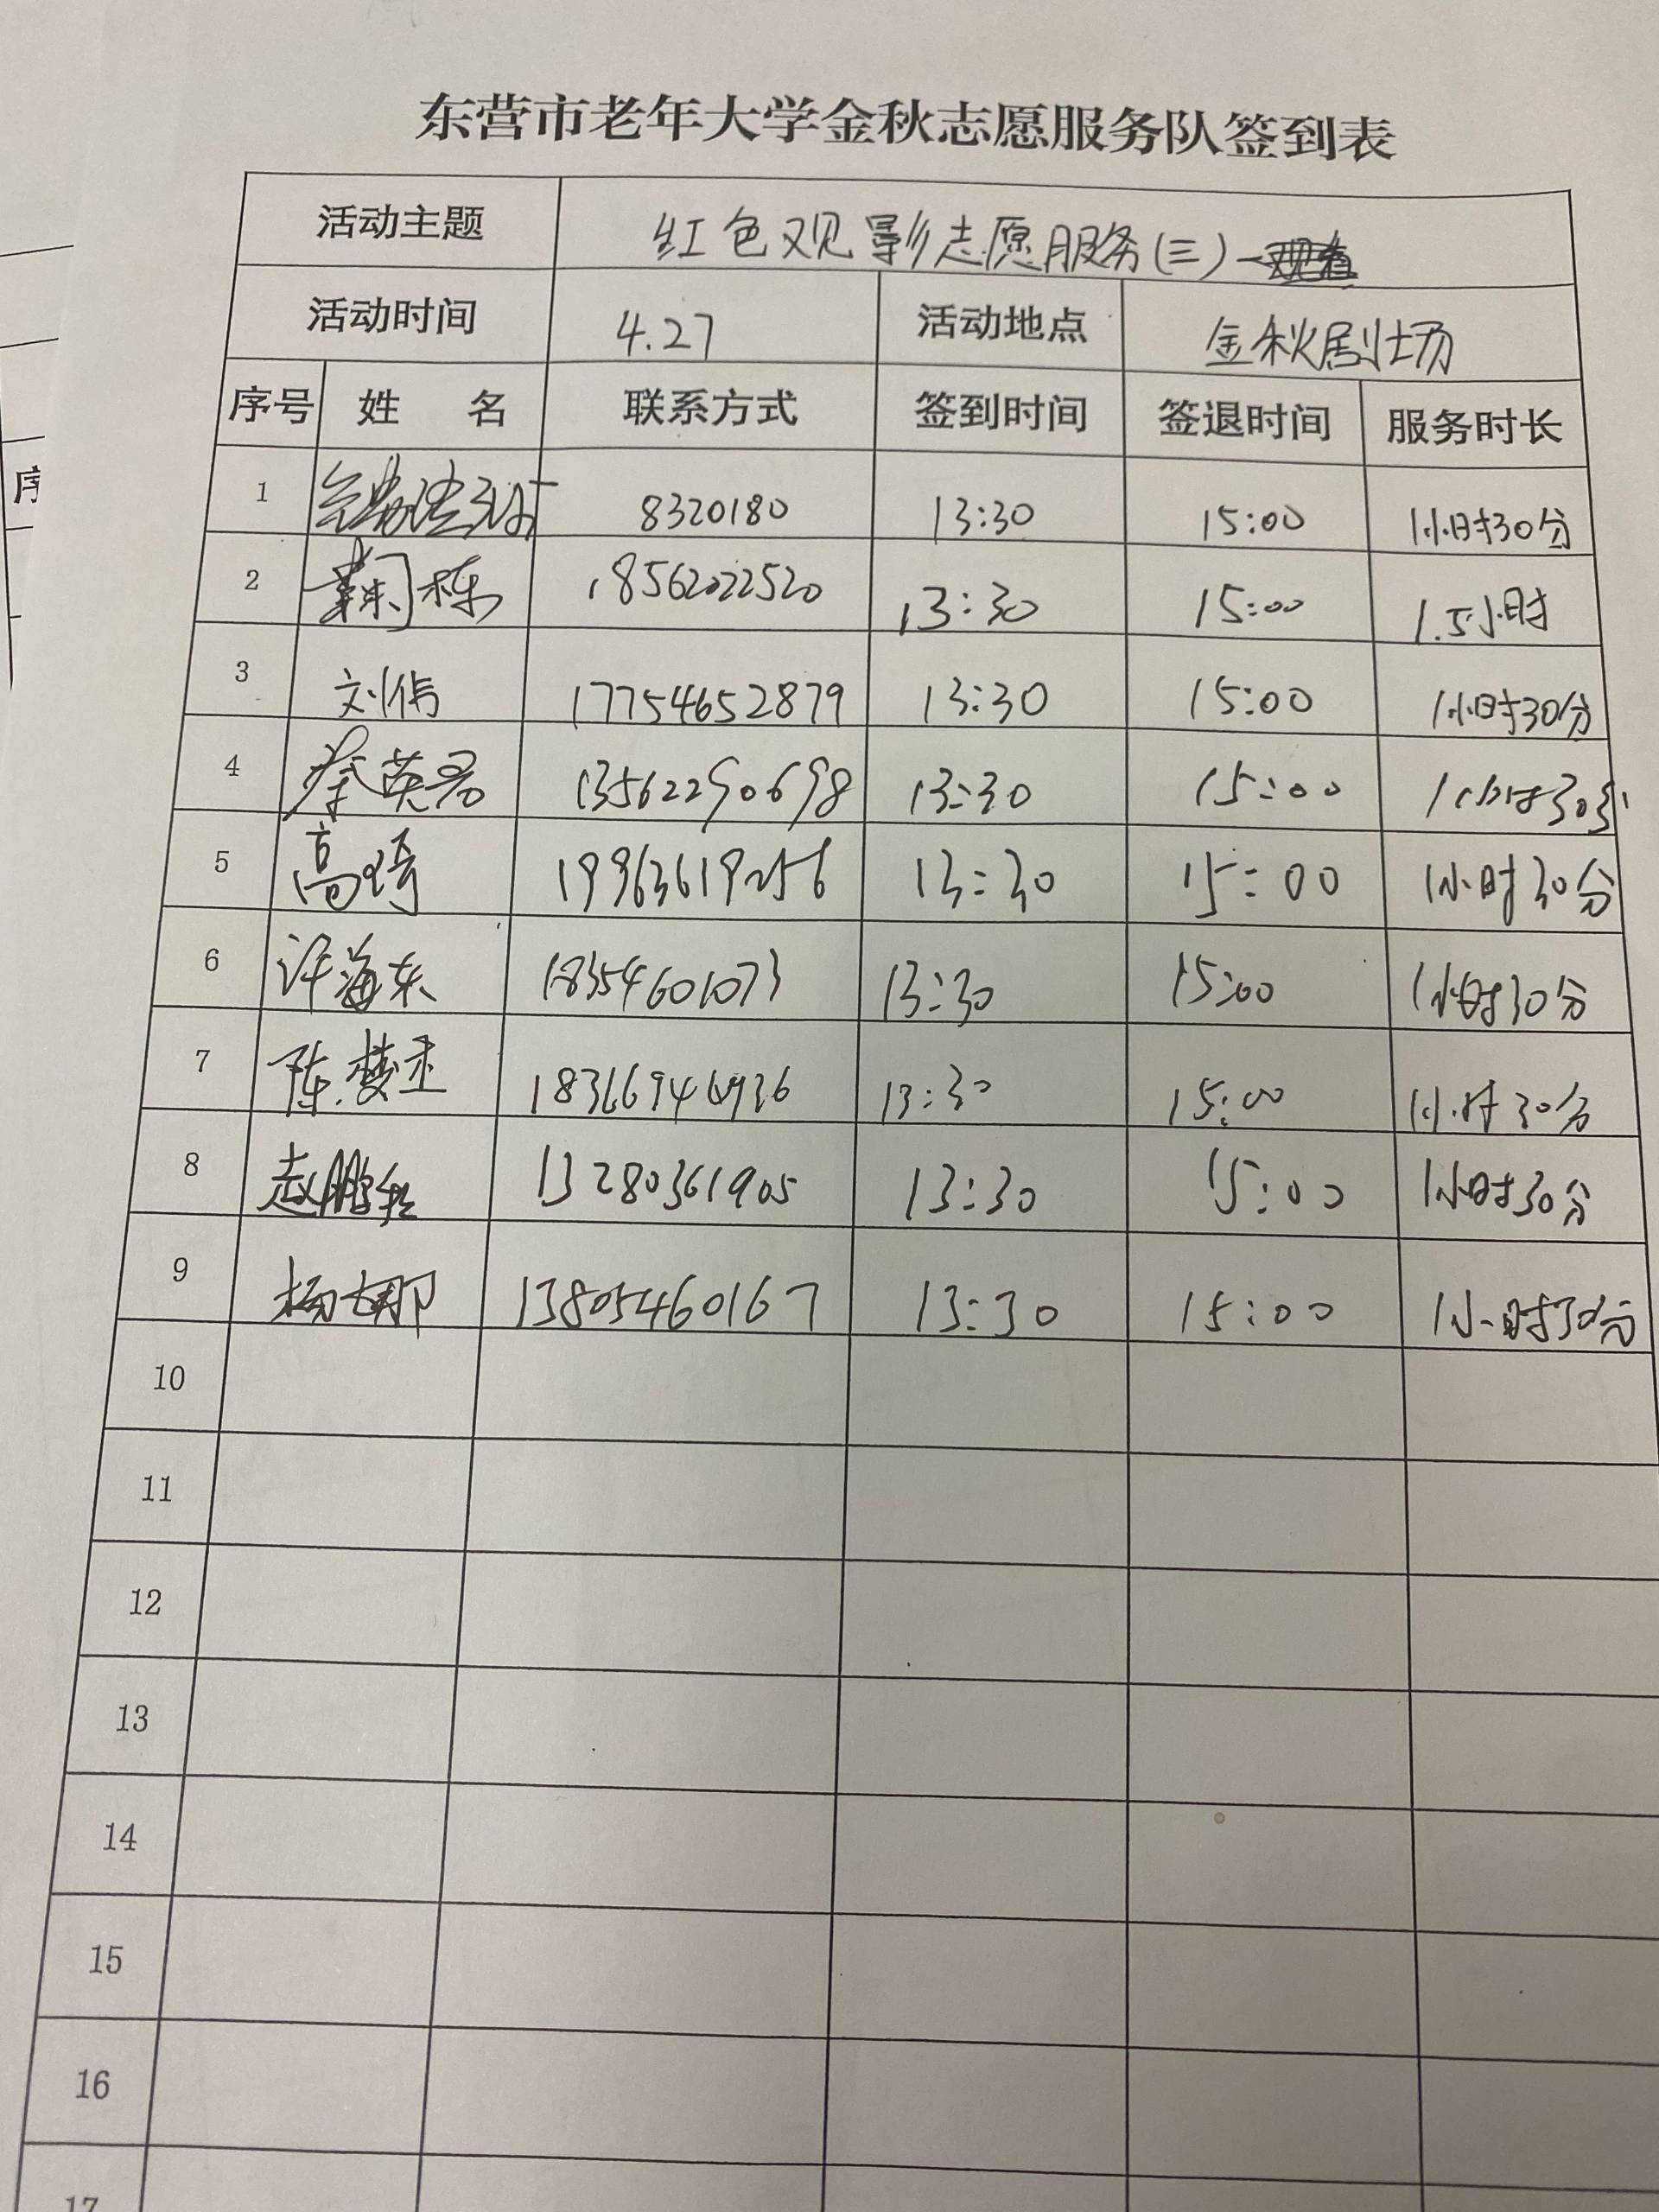 东营市老年大学金秋志愿服务队签到表
活动主题 红色观影志愿服务(三)
活动时间 4.27 活动地点 金秋剧场
序号 姓 名 联系方式 签到时间 签退时间 服务时长
序
1 8320180 13:30 15:00 1小时30分
2 栋 18562022520 13:30 15:00 1.5小时
3 刘伟 17754652879 13:30 15:00 1小时30分
4 蔡英君 13562290698 13:30 15:00 1小时30分
5 高琦 19963619256 13:30 15:00 1小时30分
6 许海东 18354601073 13:30 15:00 1小时30分
7 陈 13:30 15:00 1小时30分
8 赵鹏程 13280361905 13:30 15:00 1小时30分
9 杨娜 13805460167 13:30 15:00 1小时30分
10
11
12
13
14
15
16
17